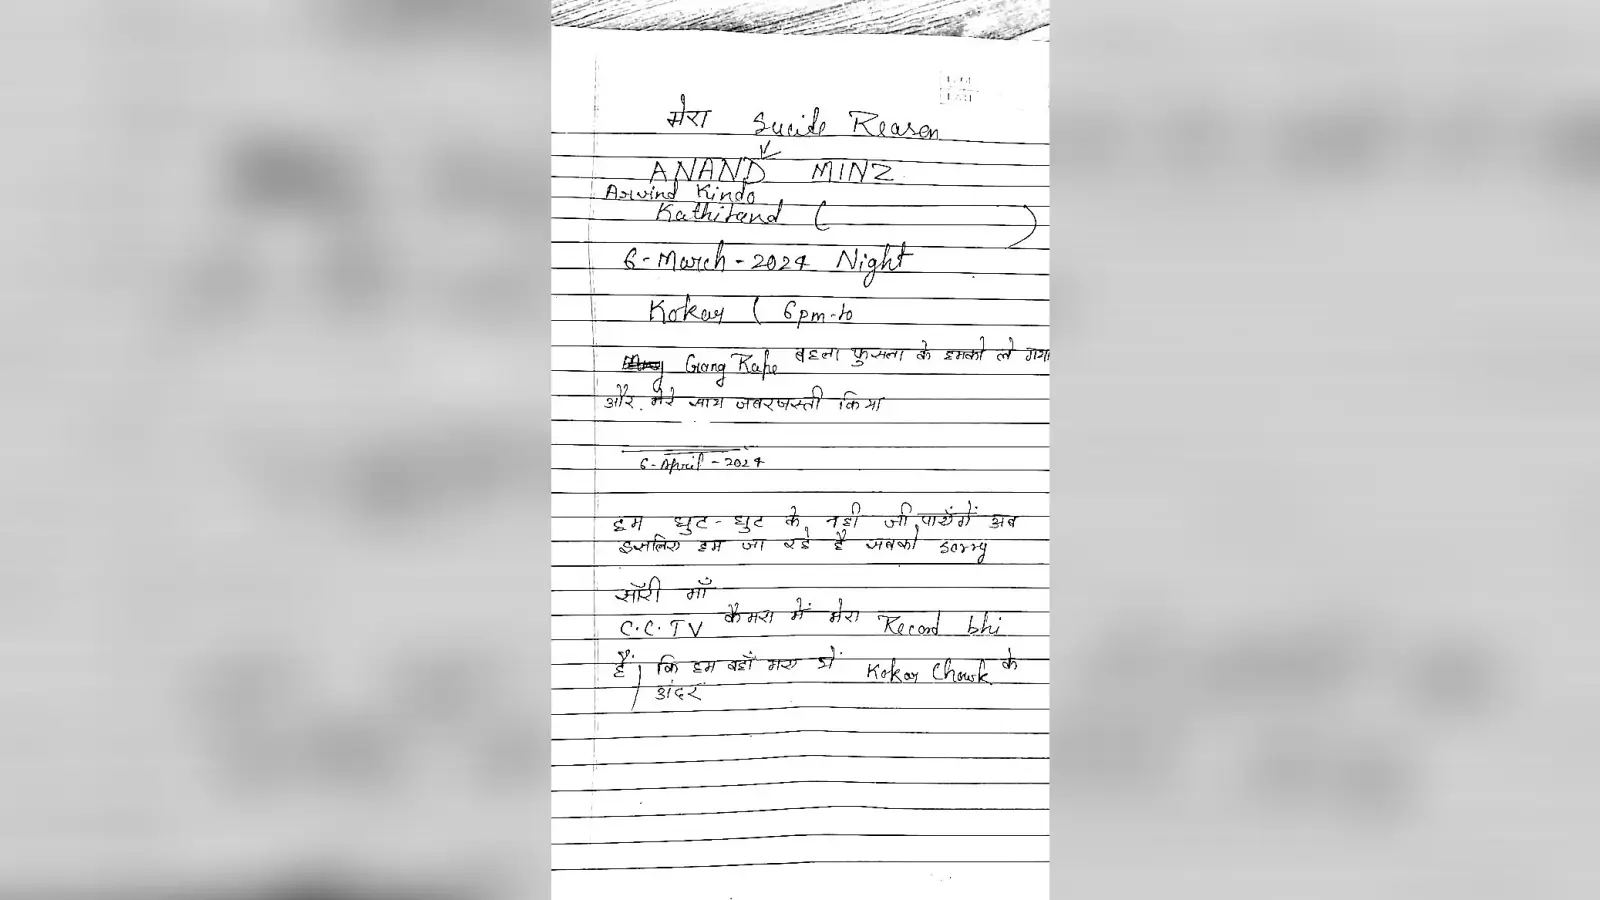 मेरा Sucide Reasen
ANAND MINZ
Arvind Kindo
Kathitand (                )
6-March-2024 Night
Kokar ( 6pm-to
Gang Rape बहला फुसला के हमको ले गया
और मेरे साथ जबरजस्ती किया
6-April-2024
हम घुट-घुट के नही जी पायेंगें अब
इसलिए हम जा रहे है सबको sorry
सॉरी माँ
C.C.TV कैमरा में मेरा Record bhi
हैं कि हम वहाँ Kokar Chowk के
अंदर